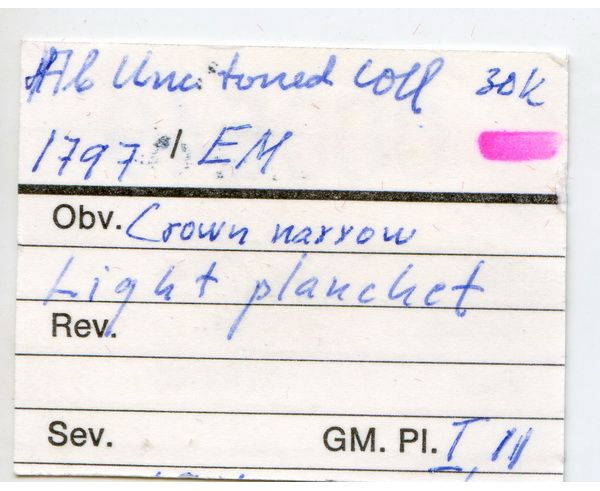 Unc. toned Coll 30K
1797 / EM
Obv. Crown narrow
Light planchet
Rev.
Sev. GM. Pl. I, 11